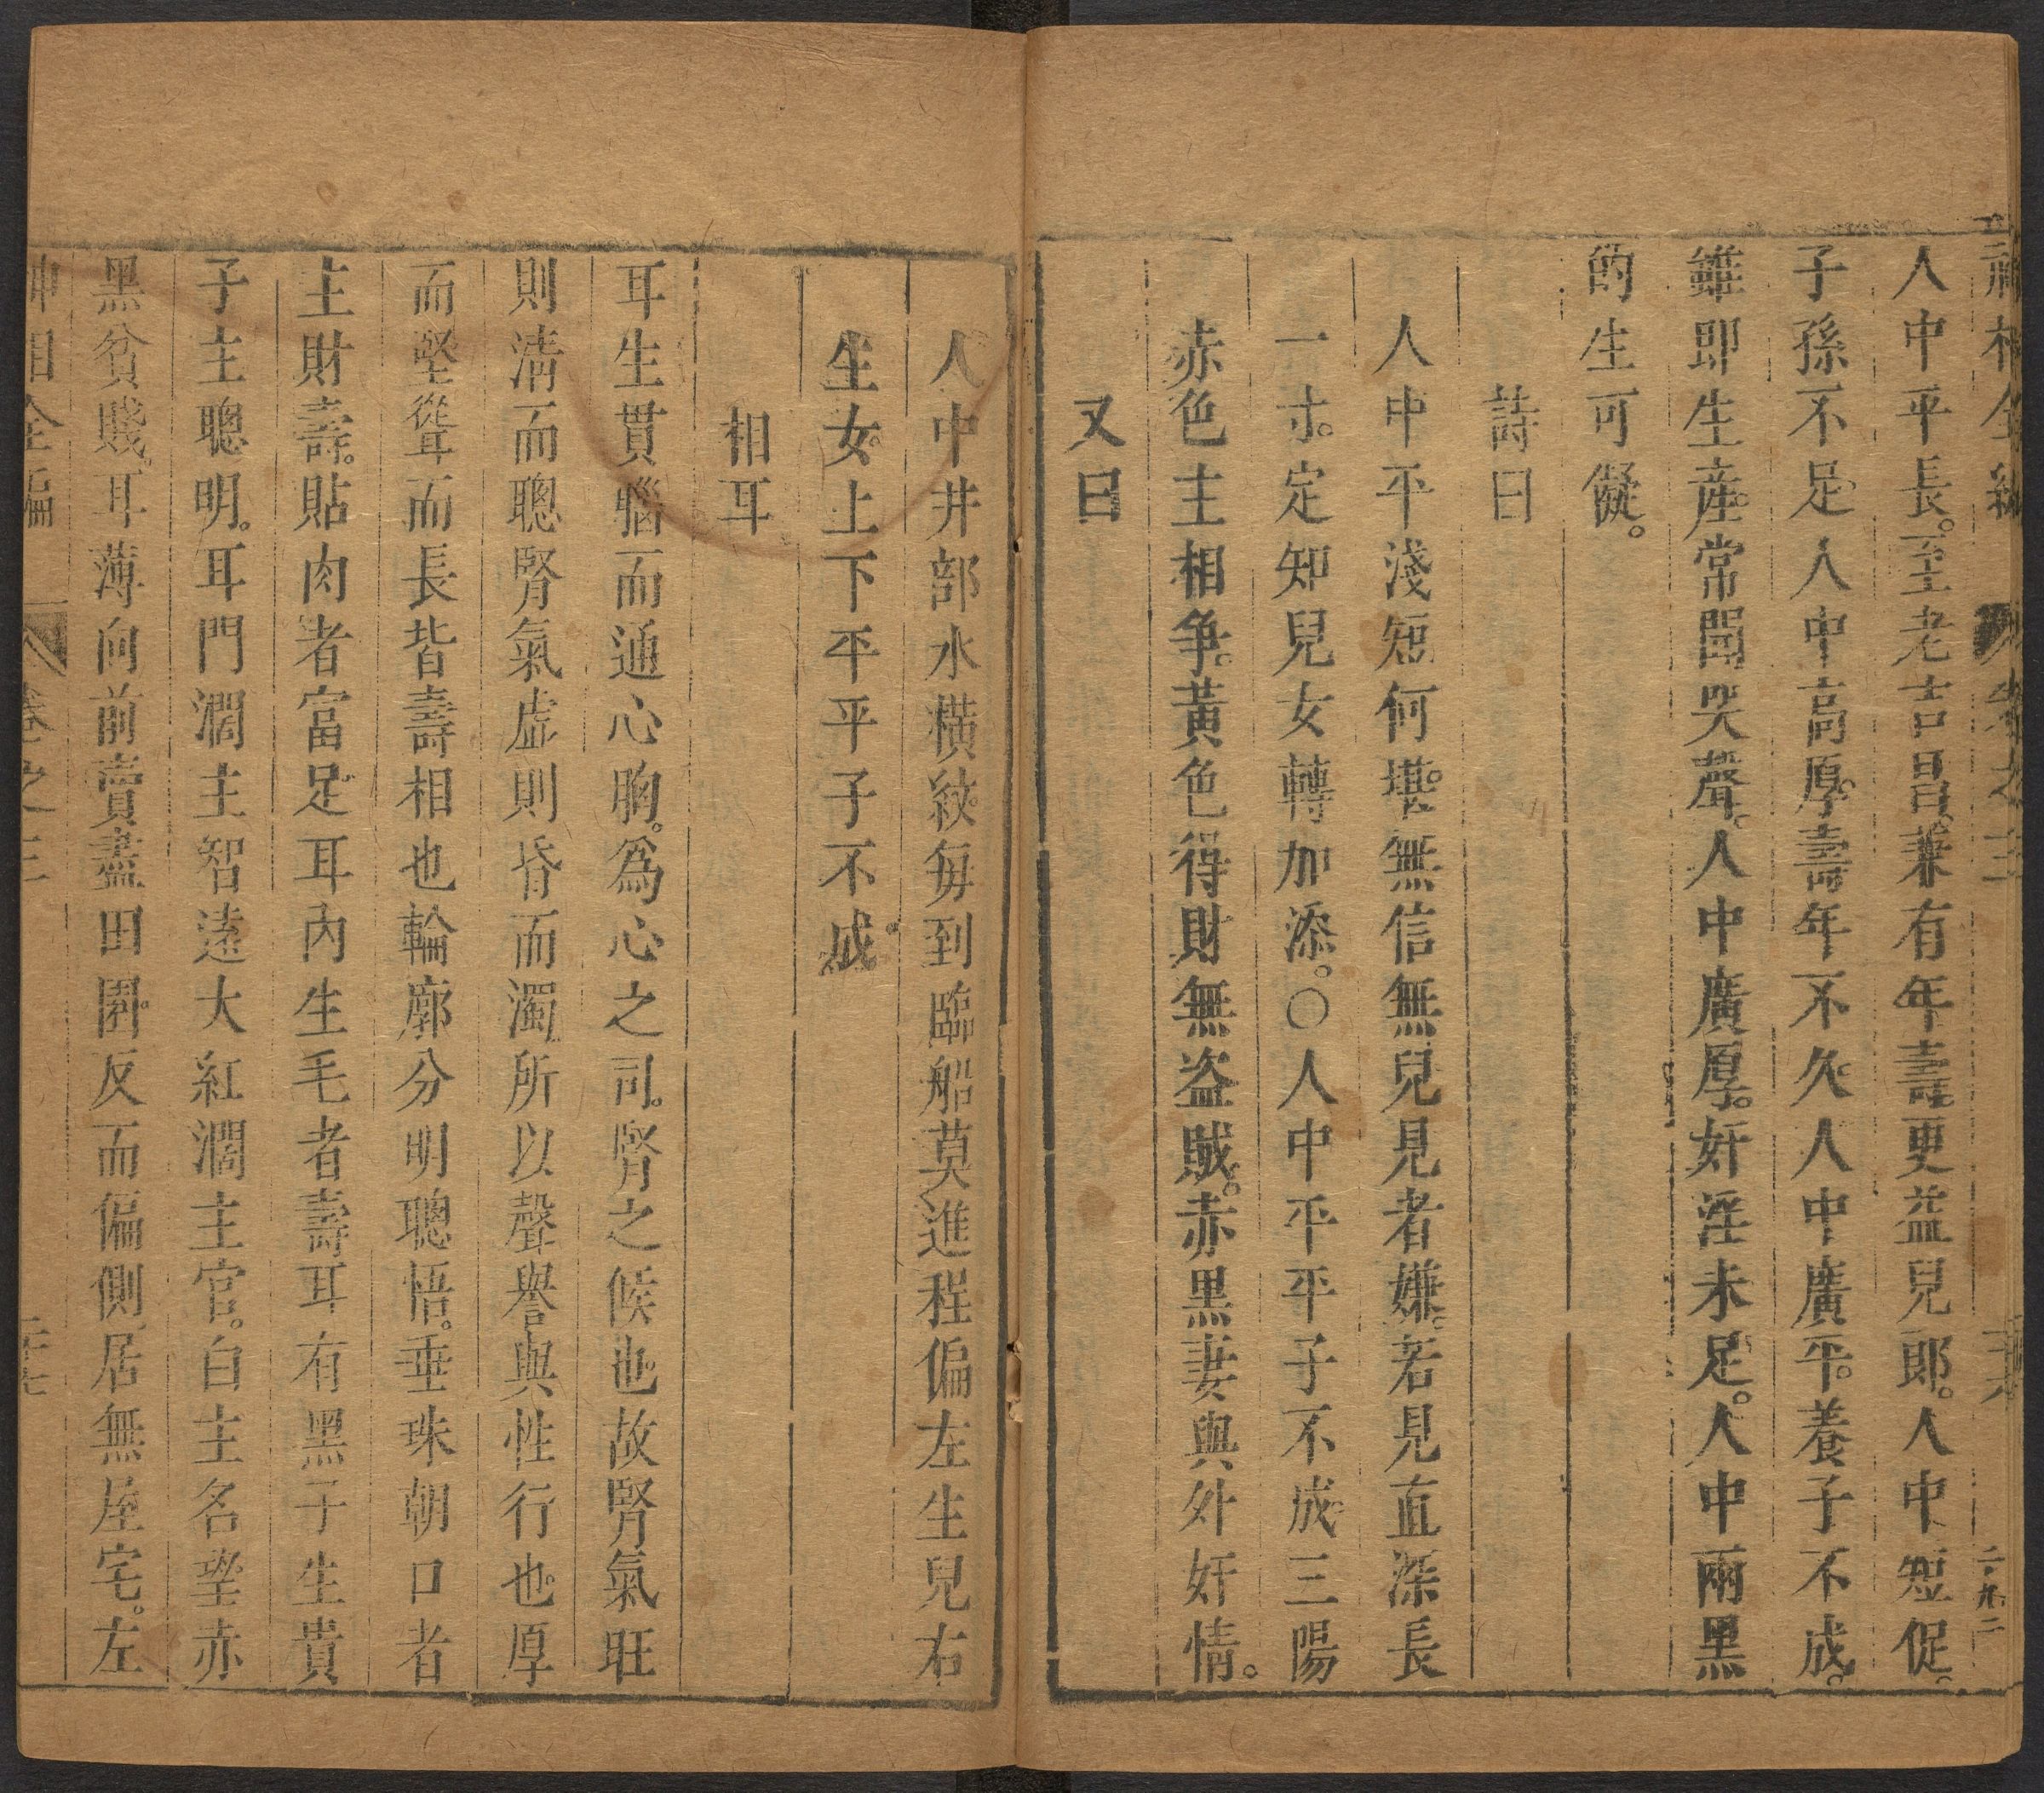 神相全編 卷之三 二九二
人中平長。至老吉昌。兼有年壽。更益兒郎。人中短促。
子孫不足。人中高厚。壽年不久。人中廣平。養子不成。
雖即生產。常聞哭聲。人中廣厚。奸淫未足。人中兩黑
的生可儗。
詩曰
人中平淺短何堪。無信無兒見者嫌。若見直深長
一寸。定知兒女轉加添。○人中平平子不成。三陽
赤色主相爭。黃色得財無盜賊。赤黑妻與外奸情。
又曰
人中井部水橫紋。每到臨船莫進程偏左生兒右
生女。上下平平子不成。
相耳
耳生貫腦而通心胸。為心之司。腎之候也。故腎氣旺
則清而聰腎氣虛則昏而濁。所以聲譽與性行也。厚
而堅聳而長皆壽相也輪廓分明聰悟。垂珠朝口者
主財壽。貼肉者富足。耳內生毛者壽耳有黑子生貴
子主聰明。耳門濶主智遠大紅濶主官。白主名望赤
黑貧賤。耳薄向前賣盡田園。反而偏側居無屋宅。左
神相全編 卷之三 二十七